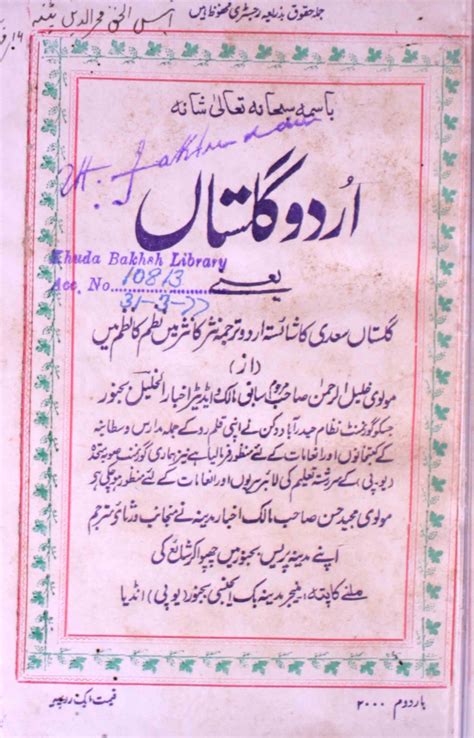 جملہ حقوق بذریعہ رجسٹری محفوظ ہیں
باسمہ سبحانہ تعالیٰ شانہ
اُردو گلستاں
Khuda Bakhsh Library
Acc. No. 10813
31-3-77
یعنے
گلستاں سعدی کا شائستہ اردو ترجمہ نثر کا نثر میں نظم کا نظم میں
(از)
مولوی خلیل الرحمٰن صاحب مرحوم سابق مالک ایڈیٹر اخبار الخلیل بجنور
جسکو گورنمنٹ نظام حیدرآباد دکن نے اپنی قلمرو کے جملہ مدارس وسطانیہ
کے کتبخانوں اور انعامات کے لئے منظور فرمایا ہے نیز ہماری گورنمنٹ صوبہ متحدہ
(یوپی) کے سررشتہ تعلیم کی لائبریریوں اور انعامات کے لئے منظور ہو چکی ہے
مولوی مجید حسن صاحب مالک اخبار مدینہ نے منجانب ورثائے مترجم
اپنے مدینہ پریس بجنور میں چھپوا کر شائع کی
ملنے کا پتہ: منیجر مدینہ بک ایجنسی بجنور (یوپی) انڈیا
بار دوم ۲۰۰۰
قیمت ایک روپیہ